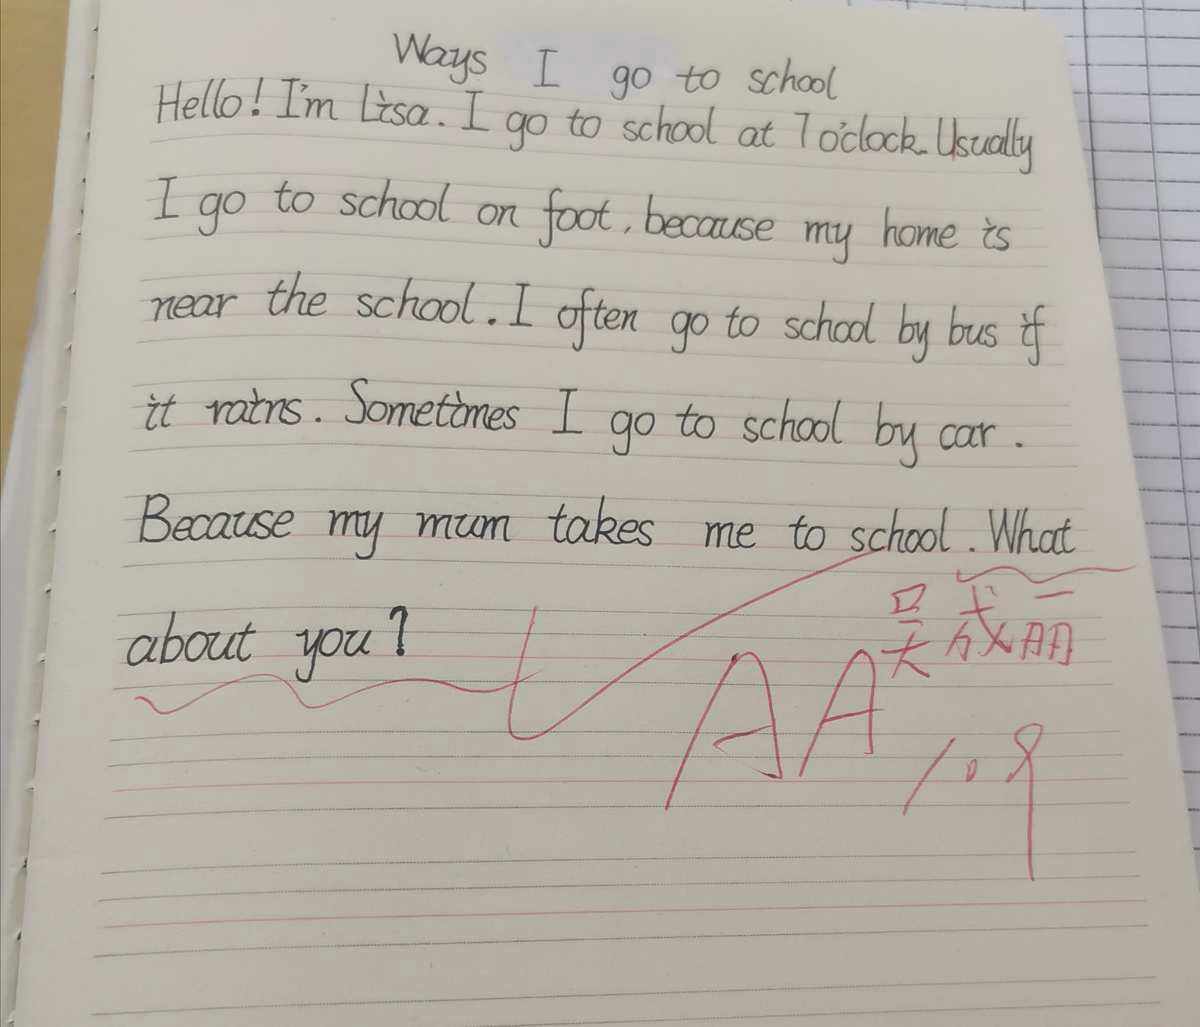 Ways I go to school
Hello! I'm Lisa. I go to school at 7 o'clock. Usually
I go to school on foot, because my home is
near the school. I often go to school by bus if
it rains. Sometimes I go to school by car.
Because my mum takes me to school. What
about you?
吴成丽
AA
10.9